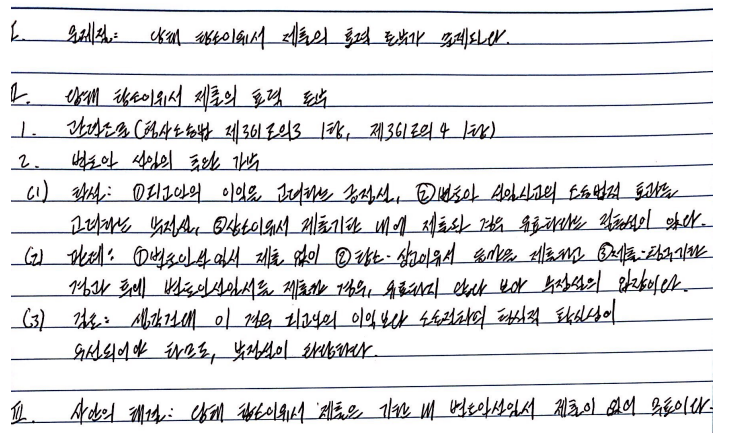 I. 문제점: 당해 항소이유서 제출의 효력 존부가 문제된다.
II. 당해 항소이유서 제출의 효력 존부
1. 관련조문(형사소송법 제361조의3 1항, 제361조의4 1항)
2. 변호인 선임의 추완 가부
(1) 학설: ①피고인의 이익을 고려하는 긍정설, ②변호인 선임신고의 소송법적 효과를
고려하는 부정설, ③상소이유서 제출기간 내에 제출된 경우 유효하다는 절충설이 있다.
(2) 판례: ①변호인선임서 제출 없이 ②항소·상고이유서 등만을 제출하고 ③제출·청구기간
경과 후에 변호인선임서를 제출한 경우, 유효하지 않다 보아 부정설의 입장이다.
(3) 검토: 생각건대 이 경우 피고인의 이익보다 소송절차의 형식적 확실성이
우선되어야 하므로, 부정설이 타당하다.
III. 사안의 해결: 당해 항소이유서 제출은 기간 내 변호인선임서 제출이 없어 무효이다.